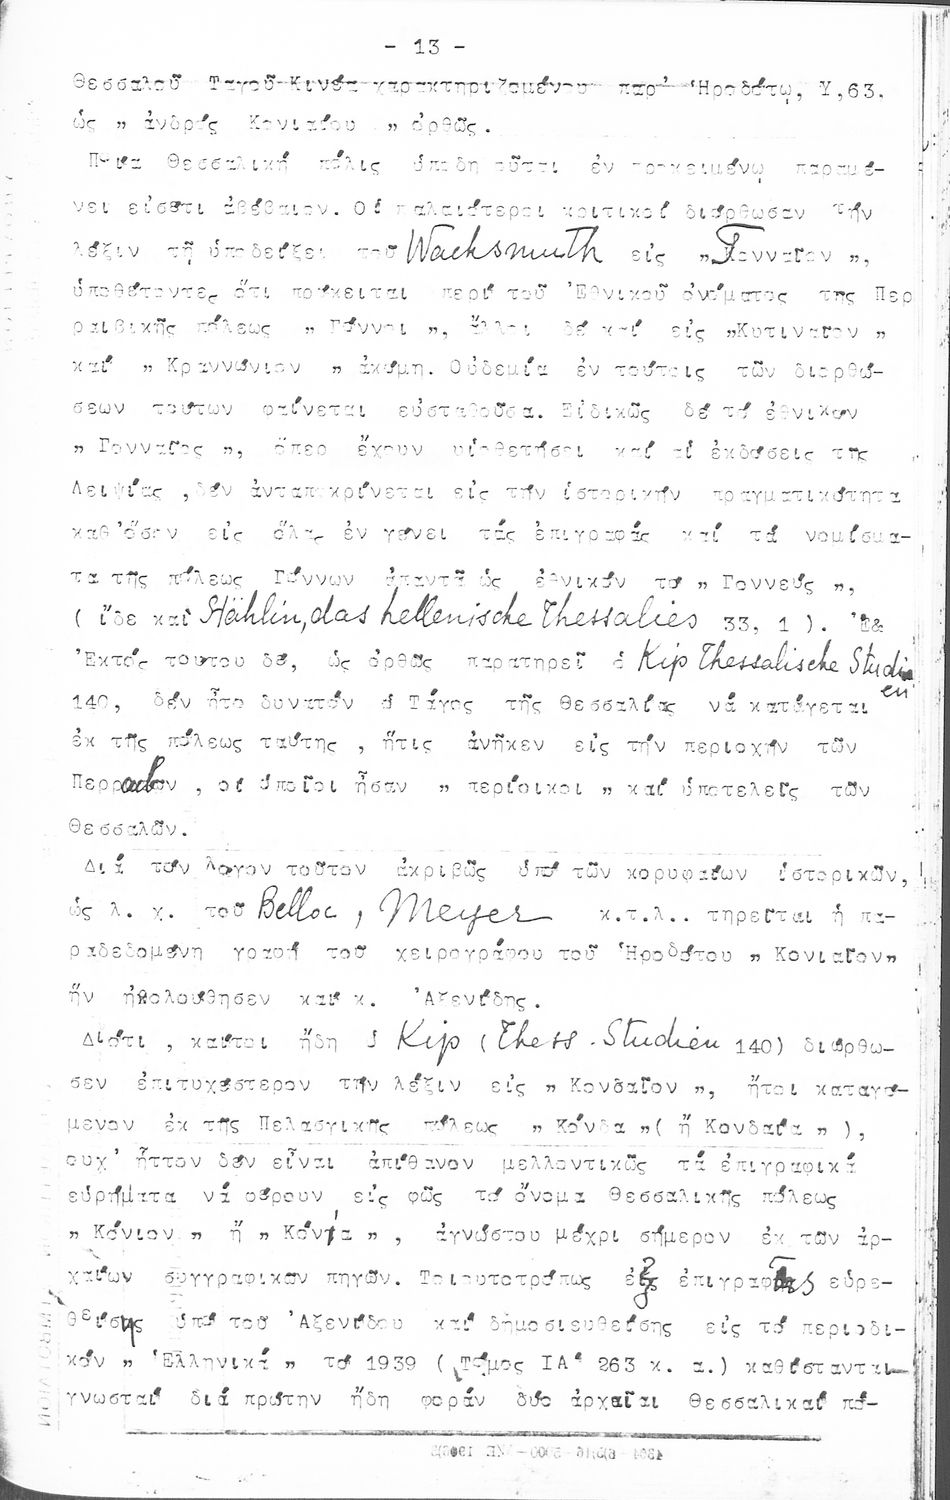 - 13 -
Θεσσαλοῦ Ταγοῦ Κινέα χαρακτηριζομένου παρ' Ἡροδότῳ, Υ,63.
ὡς „ ἀνδρός Κονιαίου „ ὀρθῶς.
Ποία Θεσσαλική πόλις ὑποδηλοῦται ἐν προκειμένῳ παραμέ-
νει εἰσέτι ἀβέβαιον. Οἱ παλαιότεροι κριτικοί διόρθωσαν τήν
λέξιν τῇ ὑποδείξει τοῦ Wachsmuth εἰς „Γονναῖον „,
ὑποθέτοντες ὅτι πρόκειται περί τοῦ Ἐθνικοῦ ὀνόματος της Περ
ραιβικῆς πόλεως „ Γόννοι „, ἄλλοι δέ καί εἰς „Κυτιναῖον „
καί „ Κραννώνιον „ ἀκόμη. Οὐδεμία ἐν τούτοις τῶν διορθώ-
σεων τούτων φαίνεται εὐσταθοῦσα. Εἰδικῶς δέ τό ἐθνικόν
„ Γονναῖος „, ὅπερ ἔχουν υἱοθετήσει καί αἱ ἐκδόσεις τῆς
Λειψίας ,δέν ἀνταποκρίνεται εἰς τήν ἱστορικήν πραγματικότητα
καθ'ὅσον εἰς ὅλας ἐν γένει τάς ἐπιγραφάς καί τά νομίσμα-
τα τῆς πόλεως Γόννων ἀπαντᾶ ὡς ἐθνικόν το „ Γοννεύς „,
( ἴδε καί Stählin, das hellenische Thessalies 33, 1 ).
Ἐκτός τούτου δέ, ὡς ὀρθῶς παρατηρεῖ ὁ Kip Thessalische Studi
en
140, δέν ἦτο δυνατόν ὁ Τάγος τῆς Θεσσαλίας νά κατάγεται
ἐκ τῆς πόλεως ταύτης , ἥτις ἀνῆκεν εἰς τήν περιοχήν τῶν
Περραιβῶν , οἱ ὁποῖοι ἦσαν „ περίοικοι „ καί ὑποτελεῖς τῶν
Θεσσαλῶν.
Διά τόν λόγον τοῦτον ἀκριβῶς ὑπό τῶν κορυφαίων ἱστορικῶν,
ὡς λ. χ. τοῦ Belloc , Meyer κ.τ.λ.. τηρεῖται ἡ πα-
ραδεδομένη γραφή τοῦ χειρογράφου τοῦ Ἡροδότου „ Κονιαῖον„
ἥν ἠκολούθησεν καί κ. Ἀξενίδης.
Διότι , καίτοι ἤδη ὁ Kip ( Thess. Studien 140) διόρθω-
σεν ἐπιτυχέστερον τήν λέξιν εἰς „ Κονδαῖον „, ἤτοι καταγό-
μενον ἐκ τῆς Πελασγικῆς πόλεως „ Κόνδα „( ἤ Κονδαία „ ),
οὐχ' ἧττον δέν εἶναι ἀπίθανον μελλοντικῶς τά ἐπιγραφικά
εὑρήματα νά φέρουν εἰς φῶς τό ὄνομα Θεσσαλικῆς πόλεως
„ Κόνιον „ ἤ „ Κονία „ , ἀγνώστου μέχρι σήμερον ἐκ τῶν ἀρ-
χαίων συγγραφικῶν πηγῶν. Τοιουτοτρόπως ἐξ ἐπιγραφῆς εὑρε-
θείσης ὑπό τοῦ Ἀξενίδου καί δημοσιευθείσης εἰς τό περιοδι-
κόν „ Ἑλληνικά „ τό 1939 ( Τόμος ΙΑ' 263 κ. α.) καθίστανται
γνωσταί διά πρώτην ἤδη φοράν δύο ἀρχαῖαι Θεσσαλικαί πό-